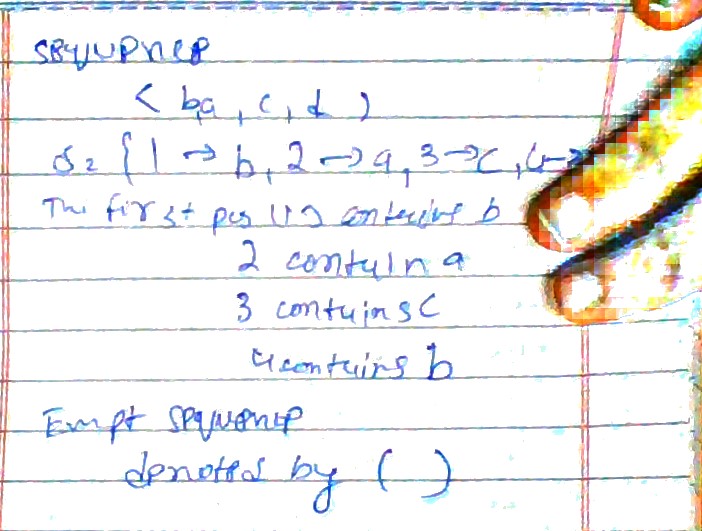 Sequence
< b,a, c, d )
S = { 1 → b, 2 → a, 3 → c, 4 →
The first pos contains b
2 contain a
3 contains c
4 contains b
Empt sequence
denoted by ( )